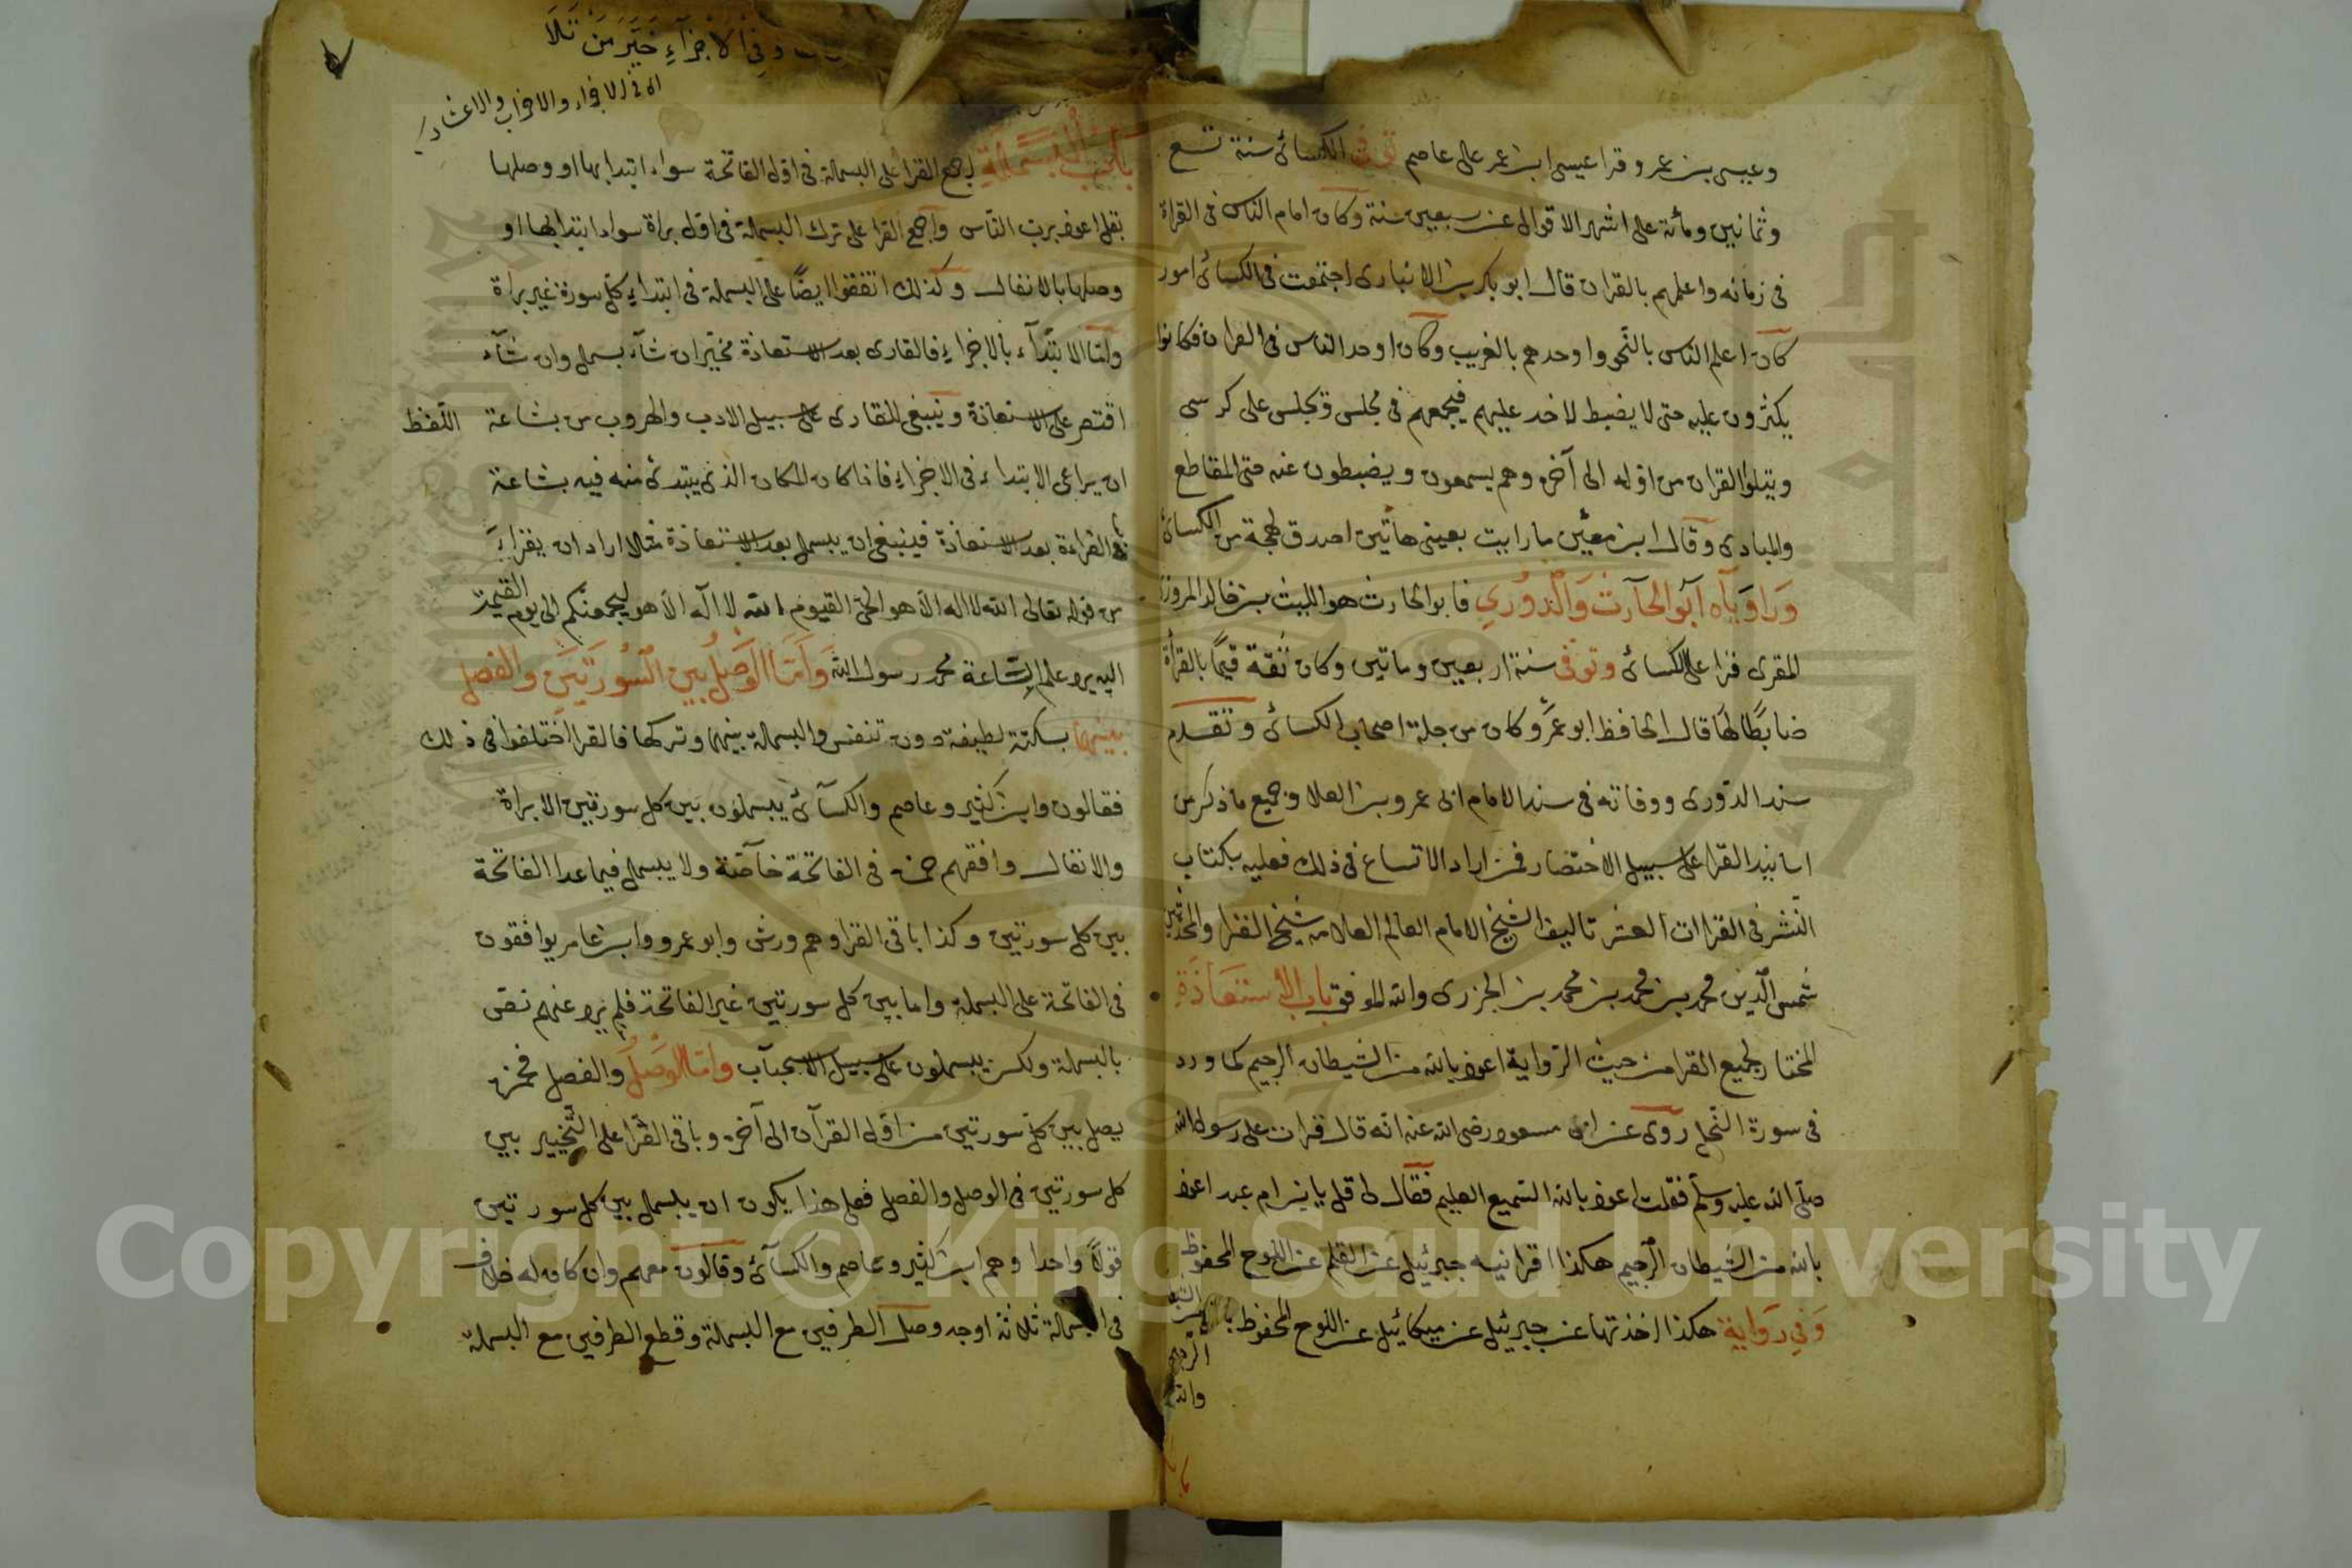 وعيسى بن عمر وقرا عيسى ابن عمر على عاصم توفى الكسائى سنة تسع
وثمانين ومائة على اشهر الاقوال عن سبعين سنة وكان امام الناس فى القراة
فى زمانه واعلمهم بالقران قال ابو بكر بن الانبارى اجتمعت فى الكسائى امور
كان اعلم الناس بالنحو واوحدهم بالغريب وكان اوحد الناس فى القران فكانوا
يكثرون عليه حتى لا يضبط لاخذ عليهم فيجمعهم فى مجلس ويجلس على كرسى
ويتلوا القران من اوله الى آخره وهم يسمعون ويضبطون عنه حتى المقاطع
والمبادى وقال ابن معين ما رايت بعينى هاتين اصدق لهجة من الكسائى
وراوياه ابو الحارث والدوري فابو الحارث هو الليث بن خالد المروزى
المقرى قرا على الكسائى وتوفى سنة اربعين وماتين وكان ثقة قيما بالقراة
ضابطا لها قال الحافظ ابو عمرو كان من جلة اصحاب الكسائى وتقدم
سند الدورى ووفاته فى سند الامام ابى عمرو بن العلا وجميع ما ذكر من
اسانيد القرا على سبيل الاختصار فمن اراد الاتساع فى ذلك فعليه بكتاب
النشر فى القراات العشر تاليف الشيخ الامام العالم العلامه شيخ القرا والمحدثين
شمس الدين محمد بن محمد بن محمد بن الجزرى والله الموفق باب الأستعاذة
المختار لجميع القرا من حيث الرواية اعوذ بالله من الشيطان الرجيم كما ورد
فى سورة النحل روى عن ابن مسعود رضى الله عنه انه قال قرات على رسول الله
صلى الله عليه وسلم فقلت اعوذ بالله السميع العليم فقال لى قل يا بن ام عبد اعوذ
بالله من الشيطان الرجيم هكذا اقرانيه جبرئيل عن القلم عن اللوح المحفوظ
وفي رواية هكذا اخذتها عن جبرئيل عن ميكائيل عن اللوح المحفوظ
وفي الاجزآء خير من تلا
اى فى الاجزاء والاحزاب والاعشار
باب البسملة اجمع القرا على البسملة فى اول الفاتحة سواء ابتدا بها او وصلها
بقل اعوذ برب الناس واجمع القرا على ترك البسملة فى اول براة سواء ابتدا بها او
وصلها بالانفال وكذلك اتفقوا ايضا على البسملة فى ابتداء كل سورة غير براة
واما الابتدآء بالاجزاء فالقارى بعد الاستعاذة مخير ان شآء بسمل وان شآء
اقتصر على الاستعاذة وينبغى للقارى على سبيل الادب والهروب من بشاعة اللفظ
ان يراعى الابتداء فى الاجزاء فاذا كان المكان الذى يبتدئ منه فيه بشاعة
القراءة بعد الاستعاذة فينبغى ان يبسمل بعد الاستعاذة مثلا اراد ان يقراء
من قوله تعالى الله لا اله الا هو الحى القيوم الله لا اله الا هو ليجمعنكم الى يوم القيمة
اليه يرد علم الساعة محمد رسول الله وأما الوصل بين السورتين والفصل
بينهما بسكتة لطيفة دون تنفس والبسملة بينهما وتركها فالقرا اختلفوا فى ذلك
فقالون وابن كثير وعاصم والكسآئى يبسملون بين كل سورتين الا براة
والانفال وافقهم حمزه فى الفاتحة خآصة ولا يبسمل فيما عدا الفاتحة
بين كل سورتين وكذا باقى القرا وهم ورش وابو عمرو وابن عامر يوافقون
فى الفاتحة على البسملة واما بين كل سورتين غير الفاتحة فلم يرد عنهم نص
بالبسملة ولكن يبسملون على سبيل الاستحباب واما الوصل والفصل فحمزه
يصل بين كل سورتين من اول القرآن الى آخره وباقى القرا على التخيير بين
كل سورتين فى الوصل والفصل فعلى هذا يكون ان يبسمل بين كل سورتين
قولا واحدا وهم ابن كثير وعاصم والكسآئى وقالون معهم وان كان له خلاف
فى البسملة ثلاثة اوجه وصل الطرفين مع البسملة وقطع الطرفين مع البسملة
Copyright © King Saud University
1957